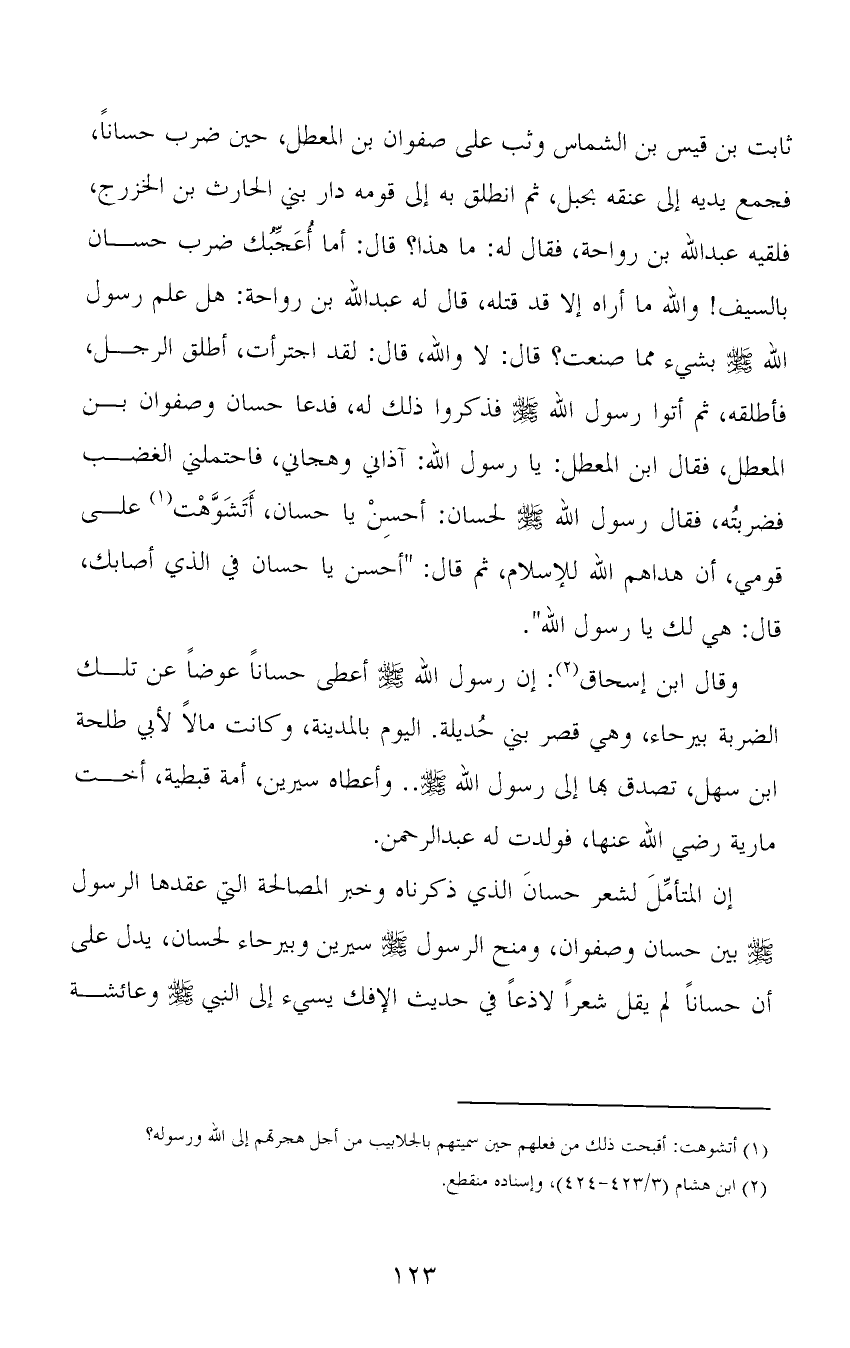 ثابت بن قيس بن الشماس وثب على صفوان بن المعطل، حين ضرب حساناً،
فجمع يديه إلى عنقه بحبل، ثم انطلق به إلى قومه دار بني الحارث بن الخزرج،
فلقيه عبدالله بن رواحة، فقال له: ما هذا؟ قال: أما أُعَجِّبُك ضرب حســـان
بالسيف! والله ما أراه إلا قد قتله، قال له عبدالله بن رواحة: هل علم رسول
الله ﷺ بشيء مما صنعت؟ قال: لا والله، قال: لقد اجترأت، أطلق الرجــل،
فأطلقه، ثم أتوا رسول الله ﷺ فذكروا ذلك له، فدعا حسان وصفوان بـــن
المعطل، فقال ابن المعطل: يا رسول الله: آذاني وهجاني، فاحتملني الغضـــب
فضربتُه، فقال رسول الله ﷺ لحسان: أحسِنْ يا حسان، أَتَشَوَّهْت(١) علـــى
قومي، أن هداهم الله للإسلام، ثم قال: "أحسن يا حسان في الذي أصابك،
قال: هي لك يا رسول الله".
وقال ابن إسحاق(٢): إن رسول الله ﷺ أعطى حساناً عوضاً عن تلـــك
الضربة بيرحاء، وهي قصر بني حُديلة. اليوم بالمدينة، وكانت مالاً لأبي طلحة
ابن سهل، تصدق بها إلى رسول الله ﷺ.. وأعطاه سيرين، أمة قبطية، أخـــت
مارية رضي الله عنها، فولدت له عبدالرحمن.
إن المتأمِّلَ لشعر حسانَ الذي ذكرناه وخبر المصالحة التي عقدها الرسول
ﷺ بين حسان وصفوان، ومنح الرسول ﷺ سيرين وبيرحاء لحسان، يدل على
أن حساناً لم يقل شعراً لاذعاً في حديث الإفك يسيء إلى النبي ﷺ وعائشـــة
(١) أتشوهت: أقبحت ذلك من فعلهم حين سميتهم بالجلابيب من أجل هجرتهم إلى الله ورسوله؟
(٢) ابن هشام (٤٢٣/٣-٤٢٤)، وإسناده منقطع.
١٢٣